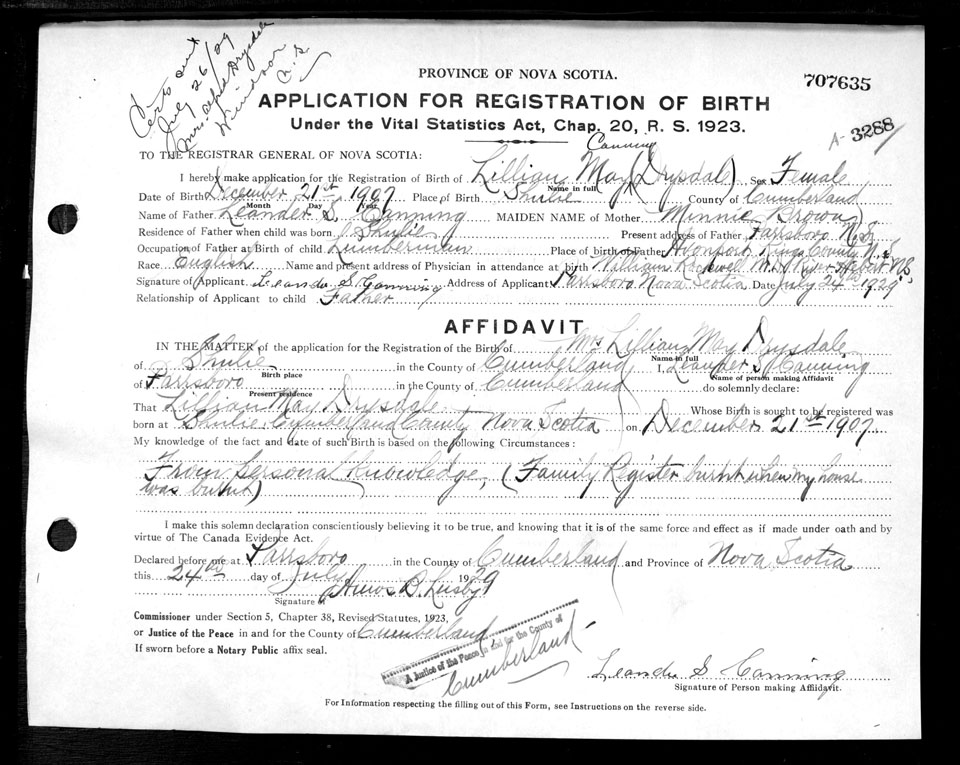 Cert sent
July 26/29
Mrs. Alfred Drysdale
Windsor
N.S.
PROVINCE OF NOVA SCOTIA.
707635
APPLICATION FOR REGISTRATION OF BIRTH
Under the Vital Statistics Act, Chap. 20, R. S. 1923.
A-3288
TO THE REGISTRAR GENERAL OF NOVA SCOTIA:
Canning
I hereby make application for the Registration of Birth of Lillian May (Drysdale) Sex Female
Name in full
Date of Birth December 21st 1907 Place of Birth Shulie County of Cumberland
Month Day Year
Name of Father Leander S. Canning MAIDEN NAME of Mother Minnie Brown
Residence of Father when child was born Shulie Present address of Father Parrsboro N.S.
Occupation of Father at Birth of child Lumberman Place of birth of Father Avonport Kings County N.S.
Race English Name and present address of Physician in attendance at birth William Rockwell M.D. River Hebert N.S.
Signature of Applicant Leander S. Canning Address of Applicant Parrsboro Nova Scotia Date July 24th 1929
Relationship of Applicant to child Father
AFFIDAVIT
IN THE MATTER of the application for the Registration of the Birth of Mrs Lillian May Drysdale
Name in full
of Shulie in the County of Cumberland I, Leander S. Canning
Birth place Name of person making Affidavit
of Parrsboro in the County of Cumberland do solemnly declare:
Present residence
That Lillian May Drysdale Whose Birth is sought to be registered was
born at Shulie, Cumberland County Nova Scotia on December 21st 1907
My knowledge of the fact and date of such Birth is based on the following Circumstances:
From personal knowledge, (Family Register burnt when my house
was burnt)
I make this solemn declaration conscientiously believing it to be true, and knowing that it is of the same force and effect as if made under oath and by
virtue of The Canada Evidence Act.
Declared before me at Parrsboro in the County of Cumberland and Province of Nova Scotia
this 24th day of July 1929
Amos B. Lusby
Signature of
Commissioner under Section 5, Chapter 38, Revised Statutes, 1923,
or Justice of the Peace in and for the County of Cumberland
If sworn before a Notary Public affix seal.
A Justice of the Peace in and for the County of
Cumberland
Leander S. Canning
Signature of Person making Affidavit.
For Information respecting the filling out of this Form, see Instructions on the reverse side.